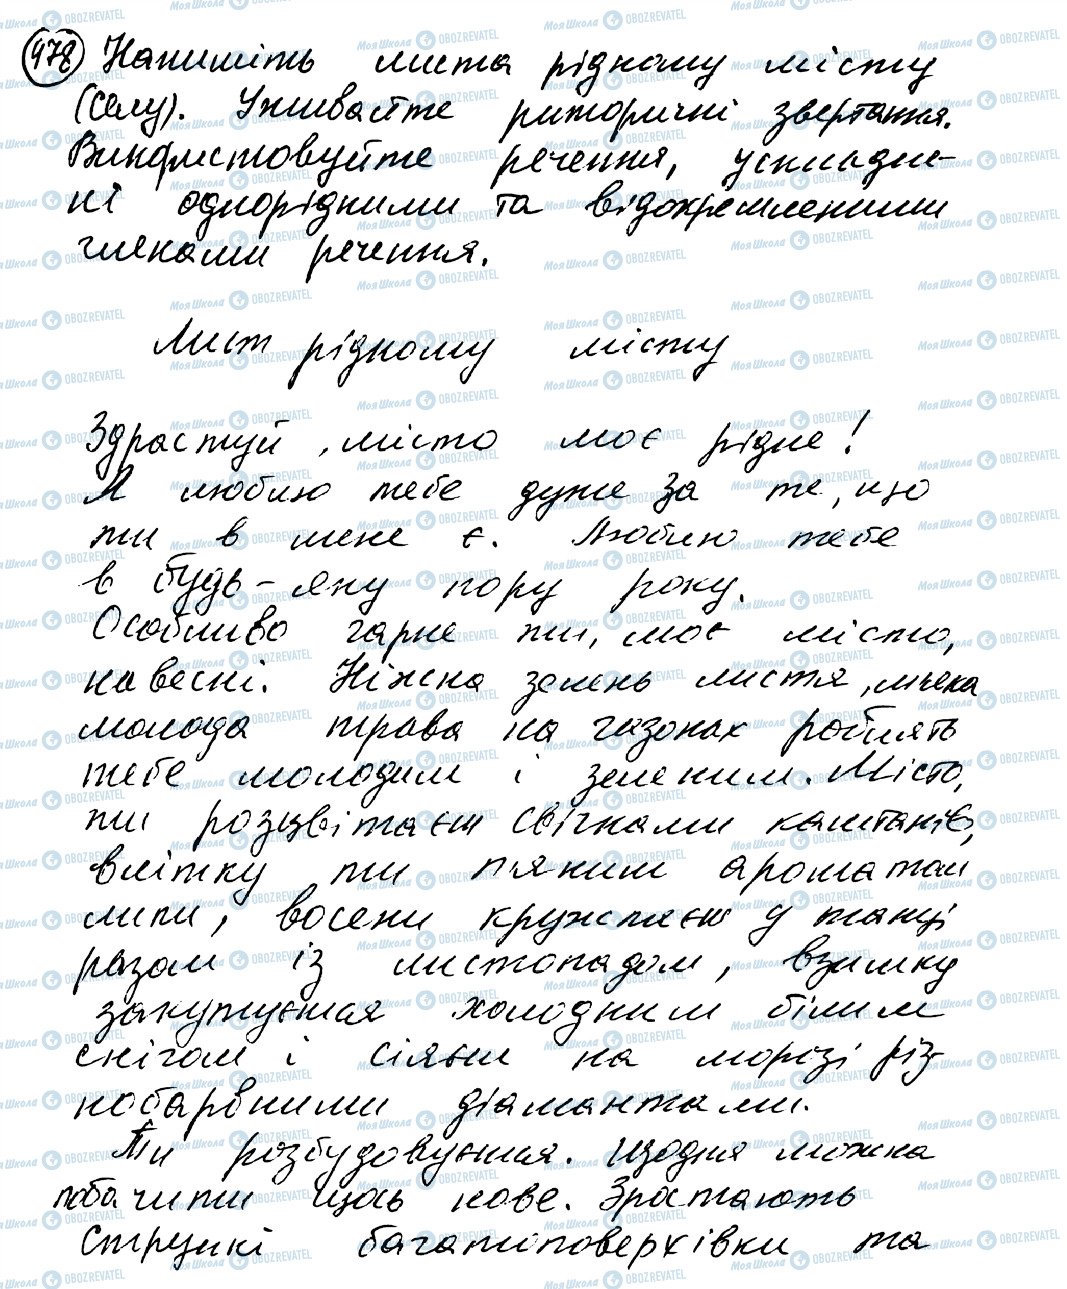 478 Напишіть листа рідному місту
(селу). Уживайте риторичні звертання.
Використовуйте речення, ускладне-
ні однорідними та відокремленими
членами речення.
Лист рідному місту
Здрастуй, місто моє рідне!
Я люблю тебе дуже за те, що
ти в мене є. Люблю тебе
в будь-яку пору року.
Особливо гарне ти, моє місто,
навесні. Ніжна зелень листя, мяка
молода трава на газонах роблять
тебе молодим і зеленим. Місто,
ти розцвітаєш свічками каштанів,
влітку ти п'яким ароматом
липи, восени кружляєш у танці
разом із листопадом, взимку
закутуєшся холодним білим
снігом і сіяєш на морозі різ-
нобарвними діамантами.
Ти розбудовуєшся. Щодня можна
побачити щось нове. Зростають
стрункі багатоповерхівки та